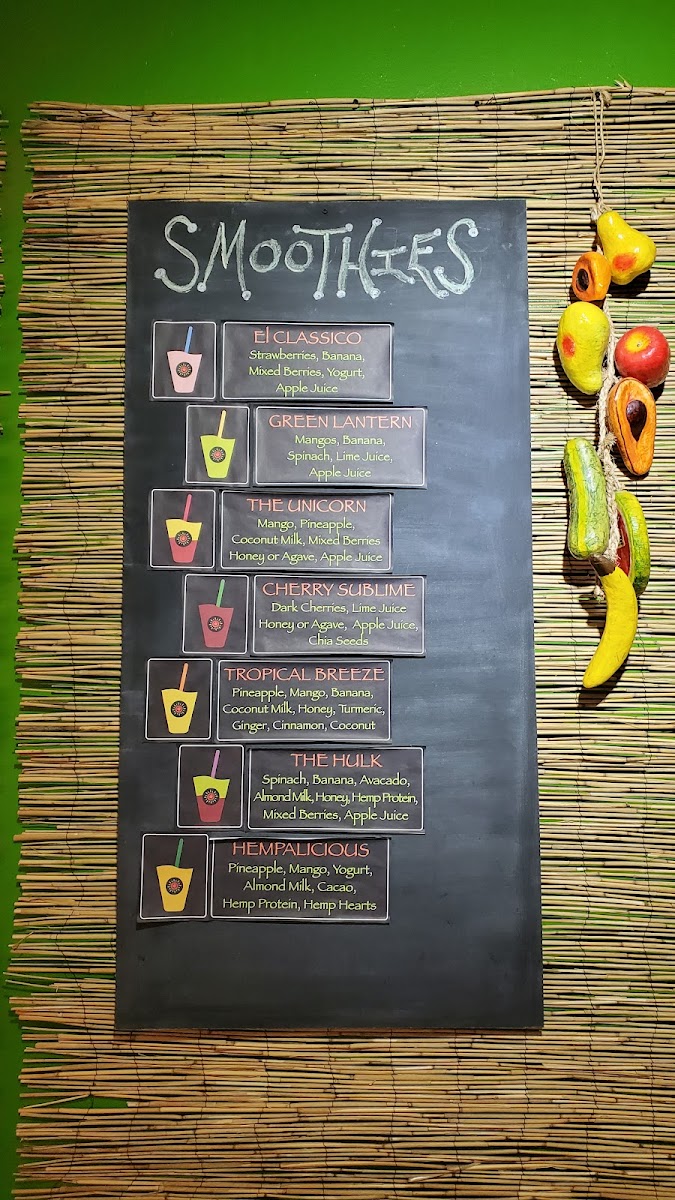 SMOOTHIES
El CLASSICO
Strawberries, Banana,
Mixed Berries, Yogurt,
Apple Juice
GREEN LANTERN
Mangos, Banana,
Spinach, Lime Juice,
Apple Juice
THE UNICORN
Mango, Pineapple,
Coconut Milk, Mixed Berries
Honey or Agave, Apple Juice
CHERRY SUBLIME
Dark Cherries, Lime Juice
Honey or Agave, Apple Juice,
Chia Seeds
TROPICAL BREEZE
Pineapple, Mango, Banana,
Coconut Milk, Honey, Turmeric,
Ginger, Cinnamon, Coconut
THE HULK
Spinach, Banana, Avacado,
Almond Milk, Honey, Hemp Protein,
Mixed Berries, Apple Juice
HEMPALICIOUS
Pineapple, Mango, Yogurt,
Almond Milk, Cacao,
Hemp Protein, Hemp Hearts